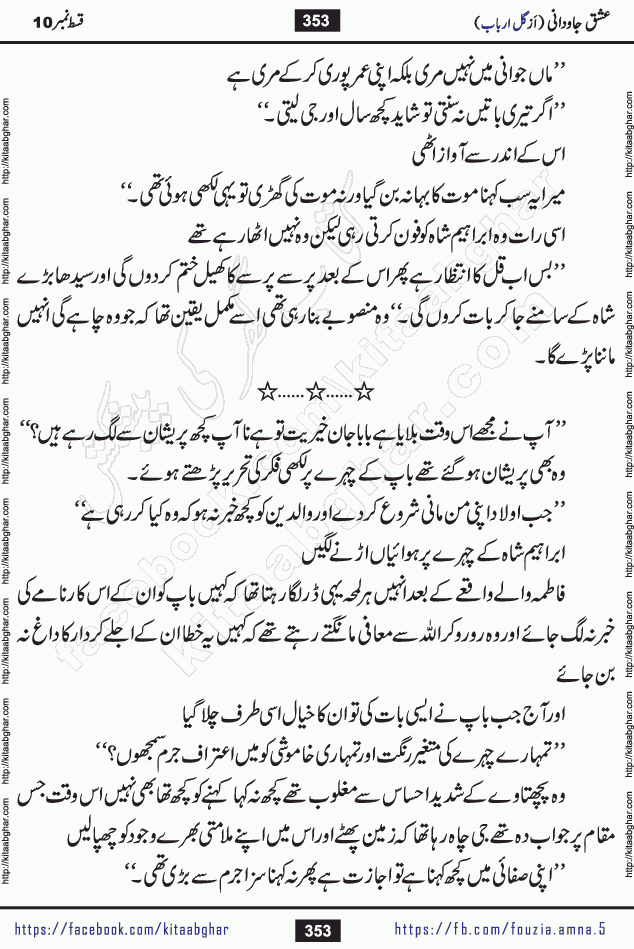 عشق جاودانی (از گل ارباب) 353 قسط نمبر 10
’’ماں جوانی میں نہیں مری بلکہ اپنی عمر پوری کر کے مری ہے
’’اگر تیری باتیں نہ سنتی تو شاید کچھ سال اور جی لیتی۔‘‘
اس کے اندر سے آواز اٹھی
میرا یہ سب کہنا موت کا بہانہ بن گیا ورنہ موت کی گھڑی تو یہی لکھی ہوئی تھی۔‘‘
اسی رات وہ ابراہیم شاہ کو فون کرتی رہی لیکن وہ نہیں اٹھا رہے تھے
’’بس اب قل کا انتظار ہے پھر اس کے بعد پر سے پر سے کا کھیل ختم کر دوں گی اور سیدھا بڑے
شاہ کے سامنے جا کر بات کروں گی۔‘‘ وہ منصوبے بنا رہی تھی اسے مکمل یقین تھا کہ جو وہ چاہے گی انہیں
ماننا پڑے گا۔
☆......☆......☆
’’آپ نے مجھے اس وقت بلایا ہے بابا جان خیریت تو ہے نا آپ کچھ پریشان سے لگ رہے ہیں؟‘‘
وہ بھی پریشان ہو گئے تھے باپ کے چہرے پر لکھی فکر کی تحریر پڑھتے ہوئے۔
’’جب اولاد اپنی من مانی شروع کر دے اور والدین کو کچھ خبر نہ ہو کہ وہ کیا کر رہی ہے‘‘
ابراہیم شاہ کے چہرے پر ہوائیاں اڑنے لگیں
فاطمہ والے واقعے کے بعد انہیں ہر لمحہ یہی ڈر لگا رہتا تھا کہ کہیں باپ کو ان کے اس کارنامے کی
خبر نہ لگ جائے اور وہ رو رو کر اللہ سے معافی مانگتے رہتے تھے کہ کہیں یہ خطا ان کے اجلے کردار کا داغ نہ
بن جائے
اور آج جب باپ نے ایسی بات کی تو ان کا خیال اسی طرف چلا گیا
’’تمہارے چہرے کی متغیر رنگت اور تمہاری خاموشی کو میں اعتراف جرم سمجھوں؟‘‘
وہ پچھتاوے کے شدید احساس سے مغلوب تھے کچھ نہ کہا کہنے کو کچھ تھا بھی نہیں اس وقت جس
مقام پر جواب دہ تھے جی چاہ رہا تھا کہ زمین پھٹے اور اس میں اپنے ملامتی بھرے وجود کو چھپا لیں
’’اپنی صفائی میں کچھ کہنا ہے تو اجازت ہے پھر نہ کہنا سزا جرم سے بڑی تھی۔‘‘
https://facebook.com/kitaabghar 353 https://fb.com/fouzia.amna.5
http://kitaabghar.com
facebook.com/kitaabghar
kitaabghar.com
کتاب گھر کی پیشکش